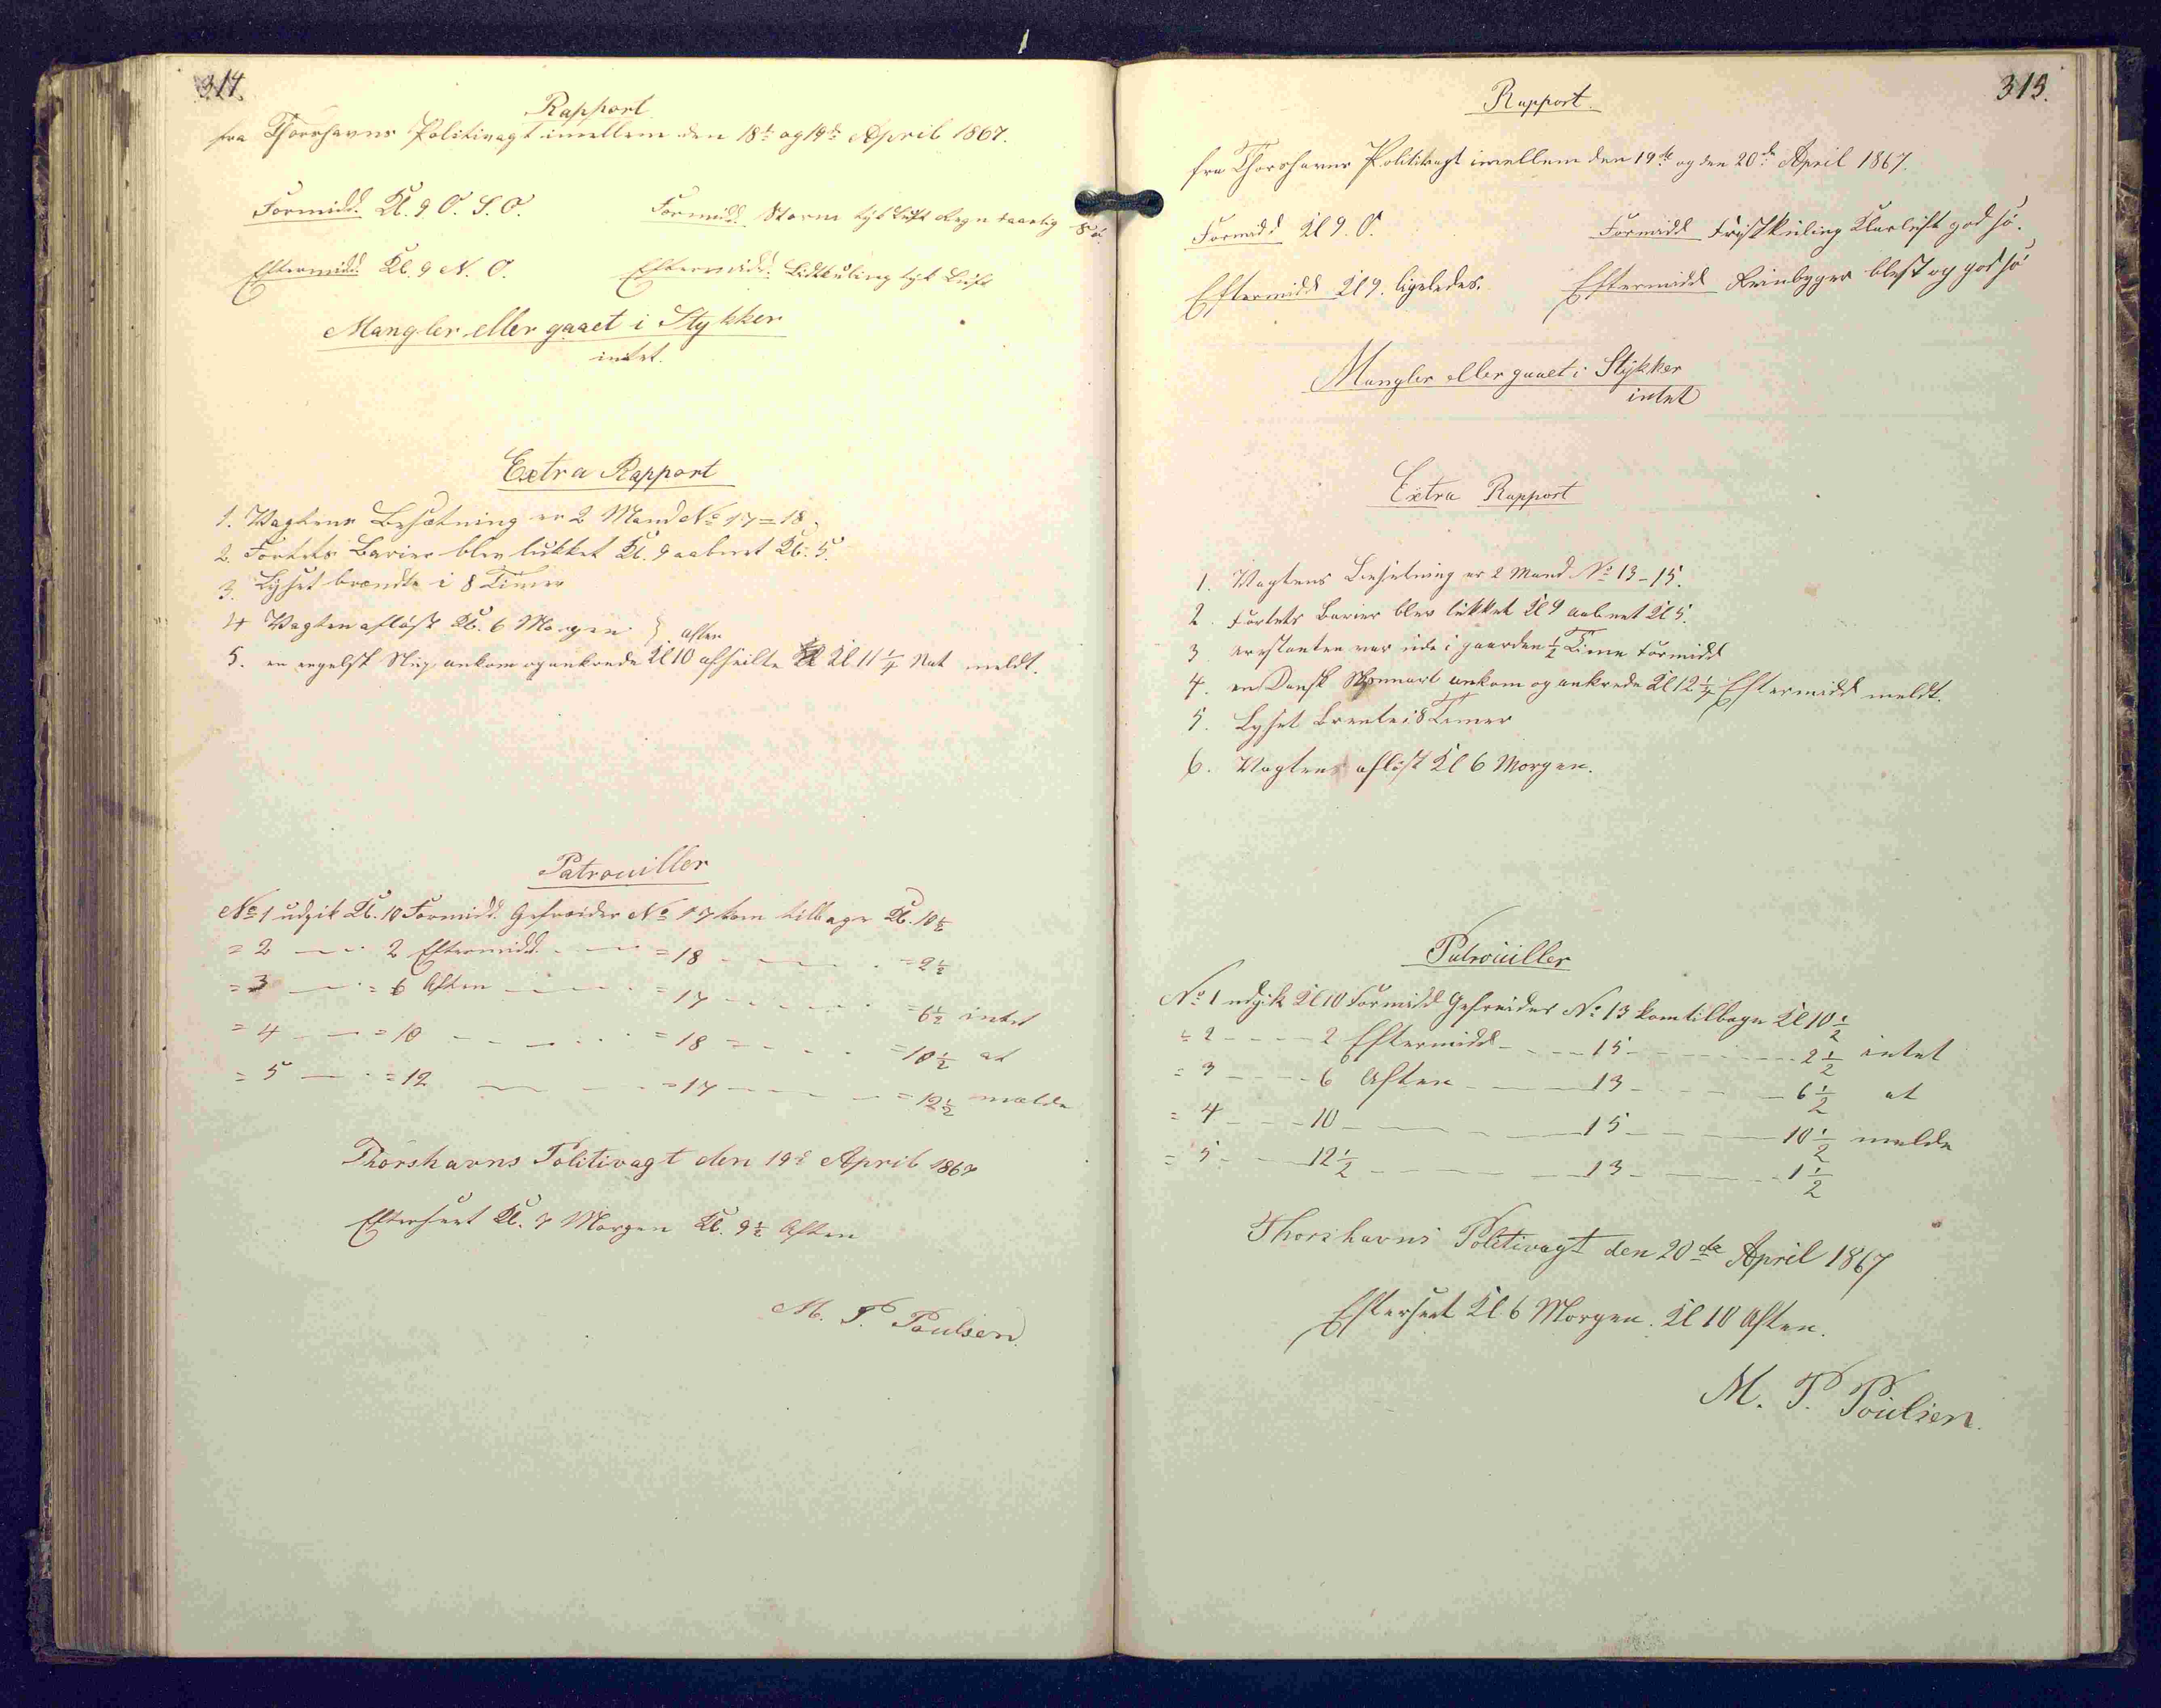 314.
Rapport
fra Thorshavns Politivagt imellem den 18de og 19de April 1867.
Formidd. Kl. 9 O. S. O.
Formidd. Storm tyk Luft Regn daarlig Sö.
Eftermidd. Kl. 9 N. O.
Eftermidd. Lidtkuling tyk Luft
Mangler eller gaaet i Stykker
intet.
Extra Rapport
1. Vagtens Besætning er 2 Mand No 17=18.
2. Fortets Barier blev lukket Kl. 9 aabnet Kl. 5.
3. Lyset brændte i 8 Timer
4 Vagten aflöst Kl. 6 Morgen
5. en engelsk Slup ankom og ankrede Kl 10 aften afseilte Kl 11 1/4 Nat meldt.
Patrouiller
No 1 udgik Kl. 10 Formidd. Gefreider No 17 kom tilbage Kl. 10 1/2
= 2 — - 2 Eftermidd. - — = 18 - — - = 2 1/2
= 3 — = 6 Aften — - = 17 - - - = 6 1/2 intet
= 4 — = 10 - — - = 18 - - - = 10 1/2 at
= 5 — = 12 — - = 17 — - = 12 1/2 melde
Thorshavns Politivagt den 19de April 1867
Efterseet Kl. 7 Morgen Kl. 9 1/2 Aften
M. P. Poulsen
315.
Rapport.
fra Thorshavns Politivagt imellem den 19de og den 20de April 1867.
Formidd Kl 9. O.
Formidd Friskkuling Klarluft god sö.
Eftermidd Kl 9. ligeledes.
Eftermidd Reinbyger blest og god sö
Mangler eller gaaet i Stykker
intet
Extra Rapport
1. Vagtens Besetning er 2 Mand No 13-15.
2. Fortets Barier blev lukket Kl 9 aabnet Kl 5.
3 arestanten var ude i gaarden 1/2 Time Formidd
4. en Dansk Skonnart ankom og ankrede Kl 12 1/4 Eftermidd meldt.
5. Lyset brente i 8 Timer
6. Vagten aflöst Kl 6 Morgen.
Patrouiller
No 1 udgik Kl 10 Formidd Gefreider No 13 kom tilbage Kl 10 1/2
= 2 - - - 2 Eftermidd - - - 15 - - - 2 1/2 intet
= 3 - - - 6 Aften - — 13 - - - 6 1/2 at
= 4 - - 10 - — - 15 - - — 10 1/2 melde
= 5 - - 12 1/2 - - — 13 - — - 1 1/2
Thorshavns Politivagt den 20de April 1867
Efterseet Kl. 6 Morgen. Kl 10 Aften.
M. P. Poulsen.